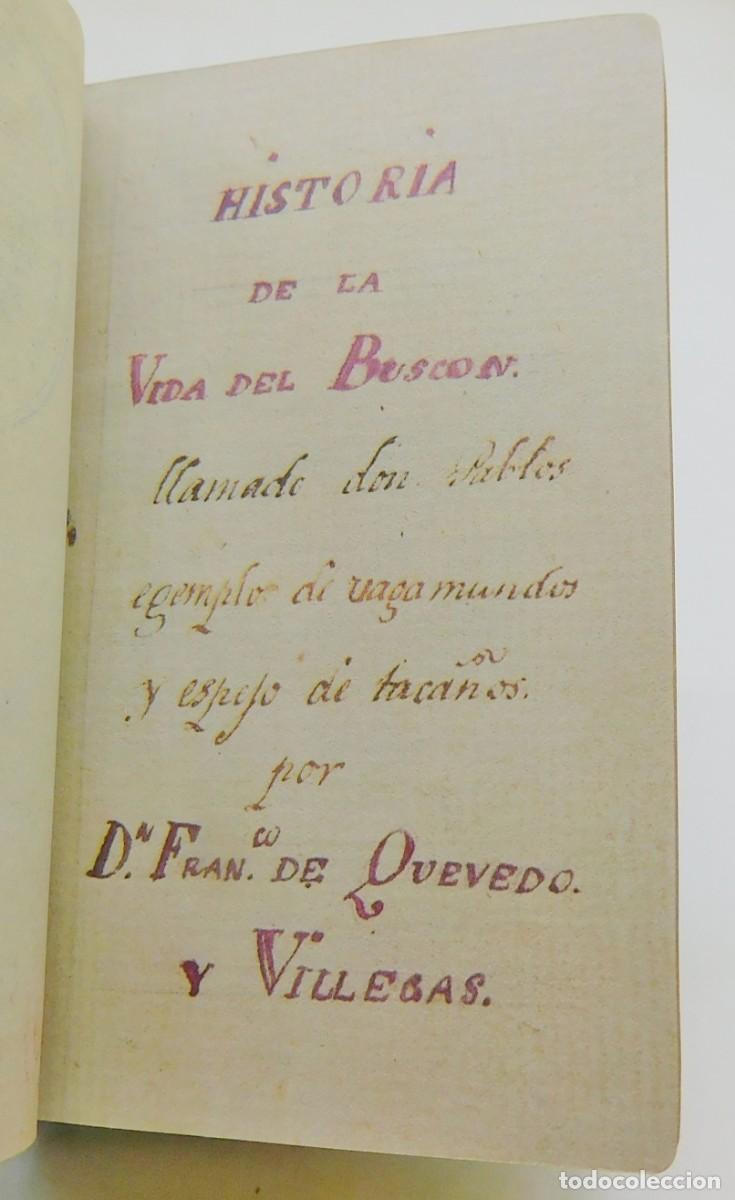 HISTORIA
DE LA
VIDA DEL BUSCON.
llamado don Pablos
egemplo de vagamundos
y espejo de tacaños.
por
D.ⁿ FRAN.ᶜᵒ DE QUEVEDO.
Y VILLEGAS.
todocoleccion